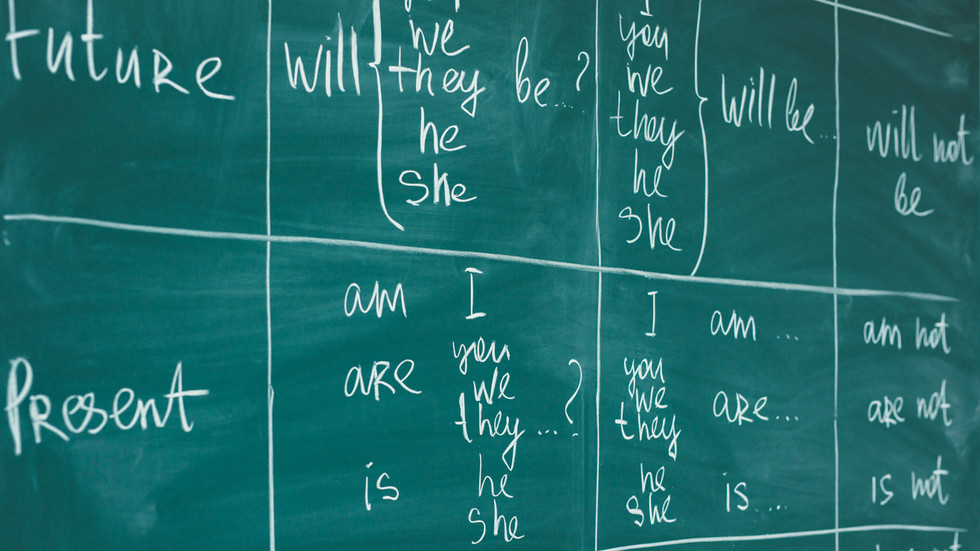 Future
will
we
they
he
she
be...?
I
you
we
they
he
she
will be...
will not
be
Present
am I
are you
we
they...?
is he
she
I am ...
you
we are...
they
he is....
she
am not
are not
is not